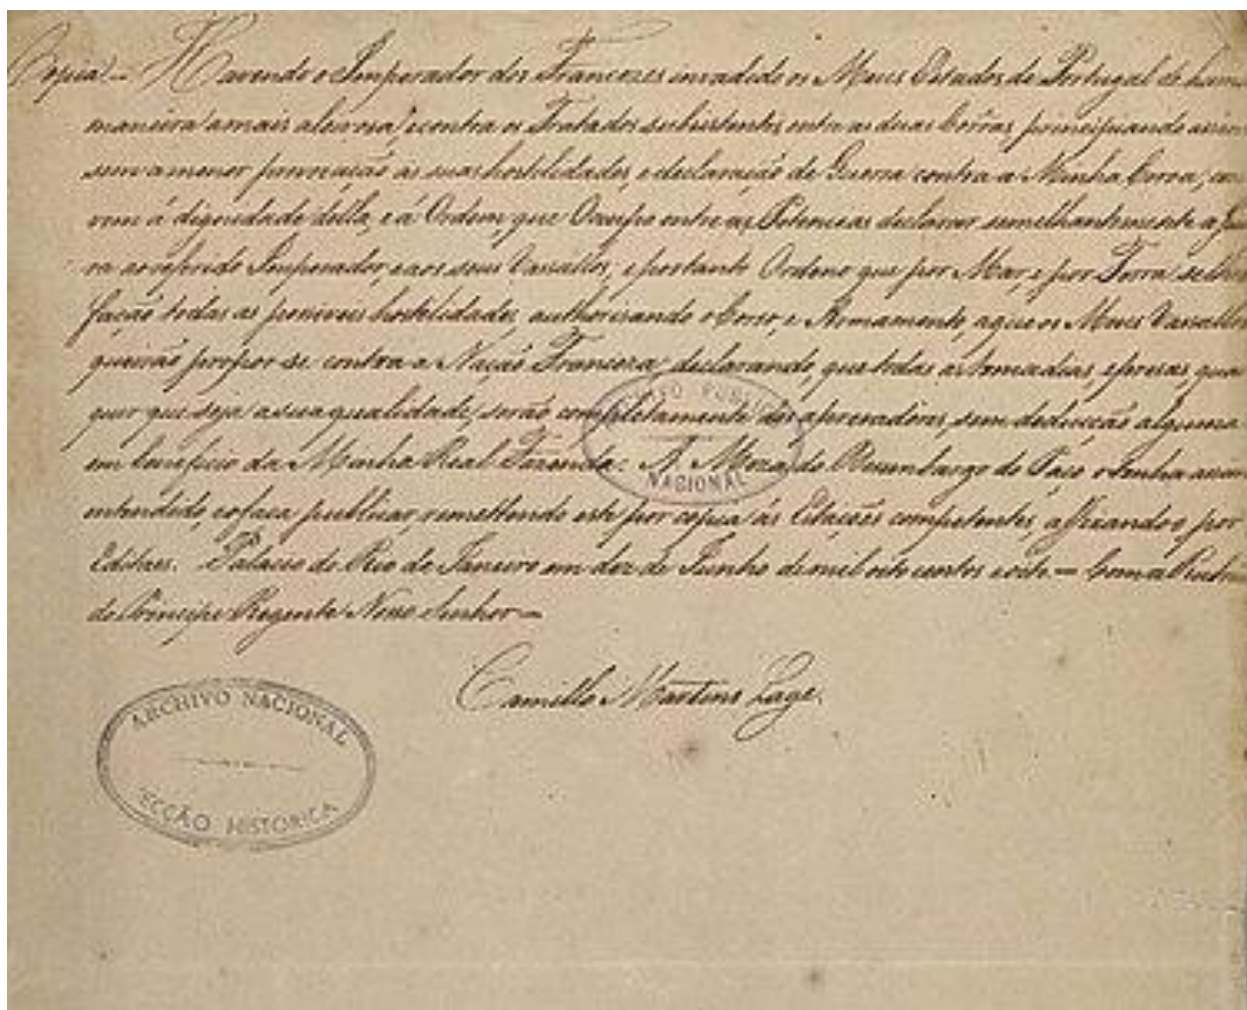 Copia = Havendo o Imperador dos Francezes invadido os Meus Estados de Portugal de huma
maneira a mais aleivosa, e contra os Tratados subsistentes entre as duas Corôas, principiando assim
sem a menor provocação as suas hostilidades, e declaração de Guerra contra a Minha Coroa, con
vem á dignidade della, e á Ordem, que Occupo entre as Potencias declarar semelhantemente a Guer
ra ao referido Imperador, e aos seus Vassallos; e portanto Ordeno que por Mar, e por Terra se lhes
fação todas as possiveis hostilidades, authorisando o Corso, e Armamento, a que os Meus Vassallos
queirão propor-se contra a Nação Franceza; declarando, que todas as tomadias, e presas, qual
quer que seja a sua qualidade, serão completamente dos aprezadores, sem deducção alguma
em beneficio da Minha Real Fazenda. A Meza do Desembargo do Paço o tenha assim
entendido, e o faça publicar, remettendo este por copia ás Estações competentes, e affixando-o por
Editaes. Palacio do Rio de Janeiro em dez de Junho de mil oito centos e oito = Com a Rubrica
do Principe Regente Nosso Senhor =
Camillo Martins Lage.
ARCHIVO PUBLICO
NACIONAL
ARCHIVO NACIONAL
SECÇÃO HISTORICA